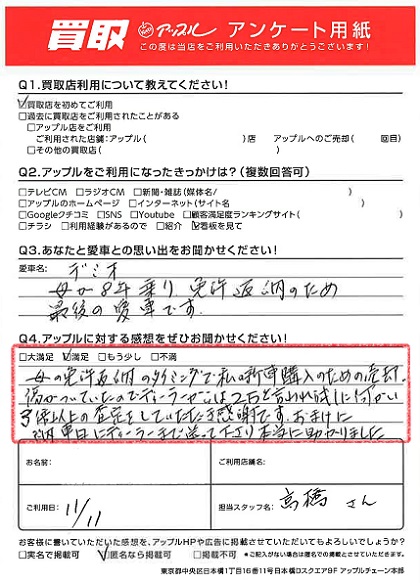 買取 アップル アンケート用紙
この度は当店をご利用いただきありがとうございます!
Q1.買取店利用について教えてください!
☑買取店を初めてご利用
□過去に買取店をご利用されたことがある
□アップル店をご利用
ご利用された店舗:アップル( )店 アップルへのご売却( 回目)
□その他の買取店( )
Q2.アップルをご利用になったきっかけは?(複数回答可)
□テレビCM □ラジオCM □新聞・雑誌(媒体名/ )
□アップルのホームページ □インターネット(サイト名 )
□Googleクチコミ □SNS □Youtube □顧客満足度ランキングサイト( )
□チラシ □利用経験があるので □紹介 ☑看板を見て
Q3.あなたと愛車との思い出をお聞かせください!
愛車名: デミオ
母が8年乗り 免許返納のため
最後の愛車です.
Q4.アップルに対する感想をぜひお聞かせください!
□大満足 ☑満足 □もう少し □不満
母の免許返納のタイミングで私の新車購入のための売却.
傷がついていたのでディーラーからは2万と言われ試しに伺い
3倍以上の査定をしていただき感謝です。おまけに
納車日にディーラーまで送って下さり本当に助かりました
お名前:
ご利用店舗名:
ご利用日: 11/11
担当スタッフ名: 高橋 さん
お客様に書いていただいた感想を、アップルHPや広告に掲載させていただいてもよろしいでしょうか?
□実名で掲載可 ☑匿名なら掲載可 □掲載不可 *ご記入がない場合は匿名での掲載とさせていただきます。
東京都中央区日本橋1丁目16番11号日本橋Dスクエア9F アップルチェーン本部